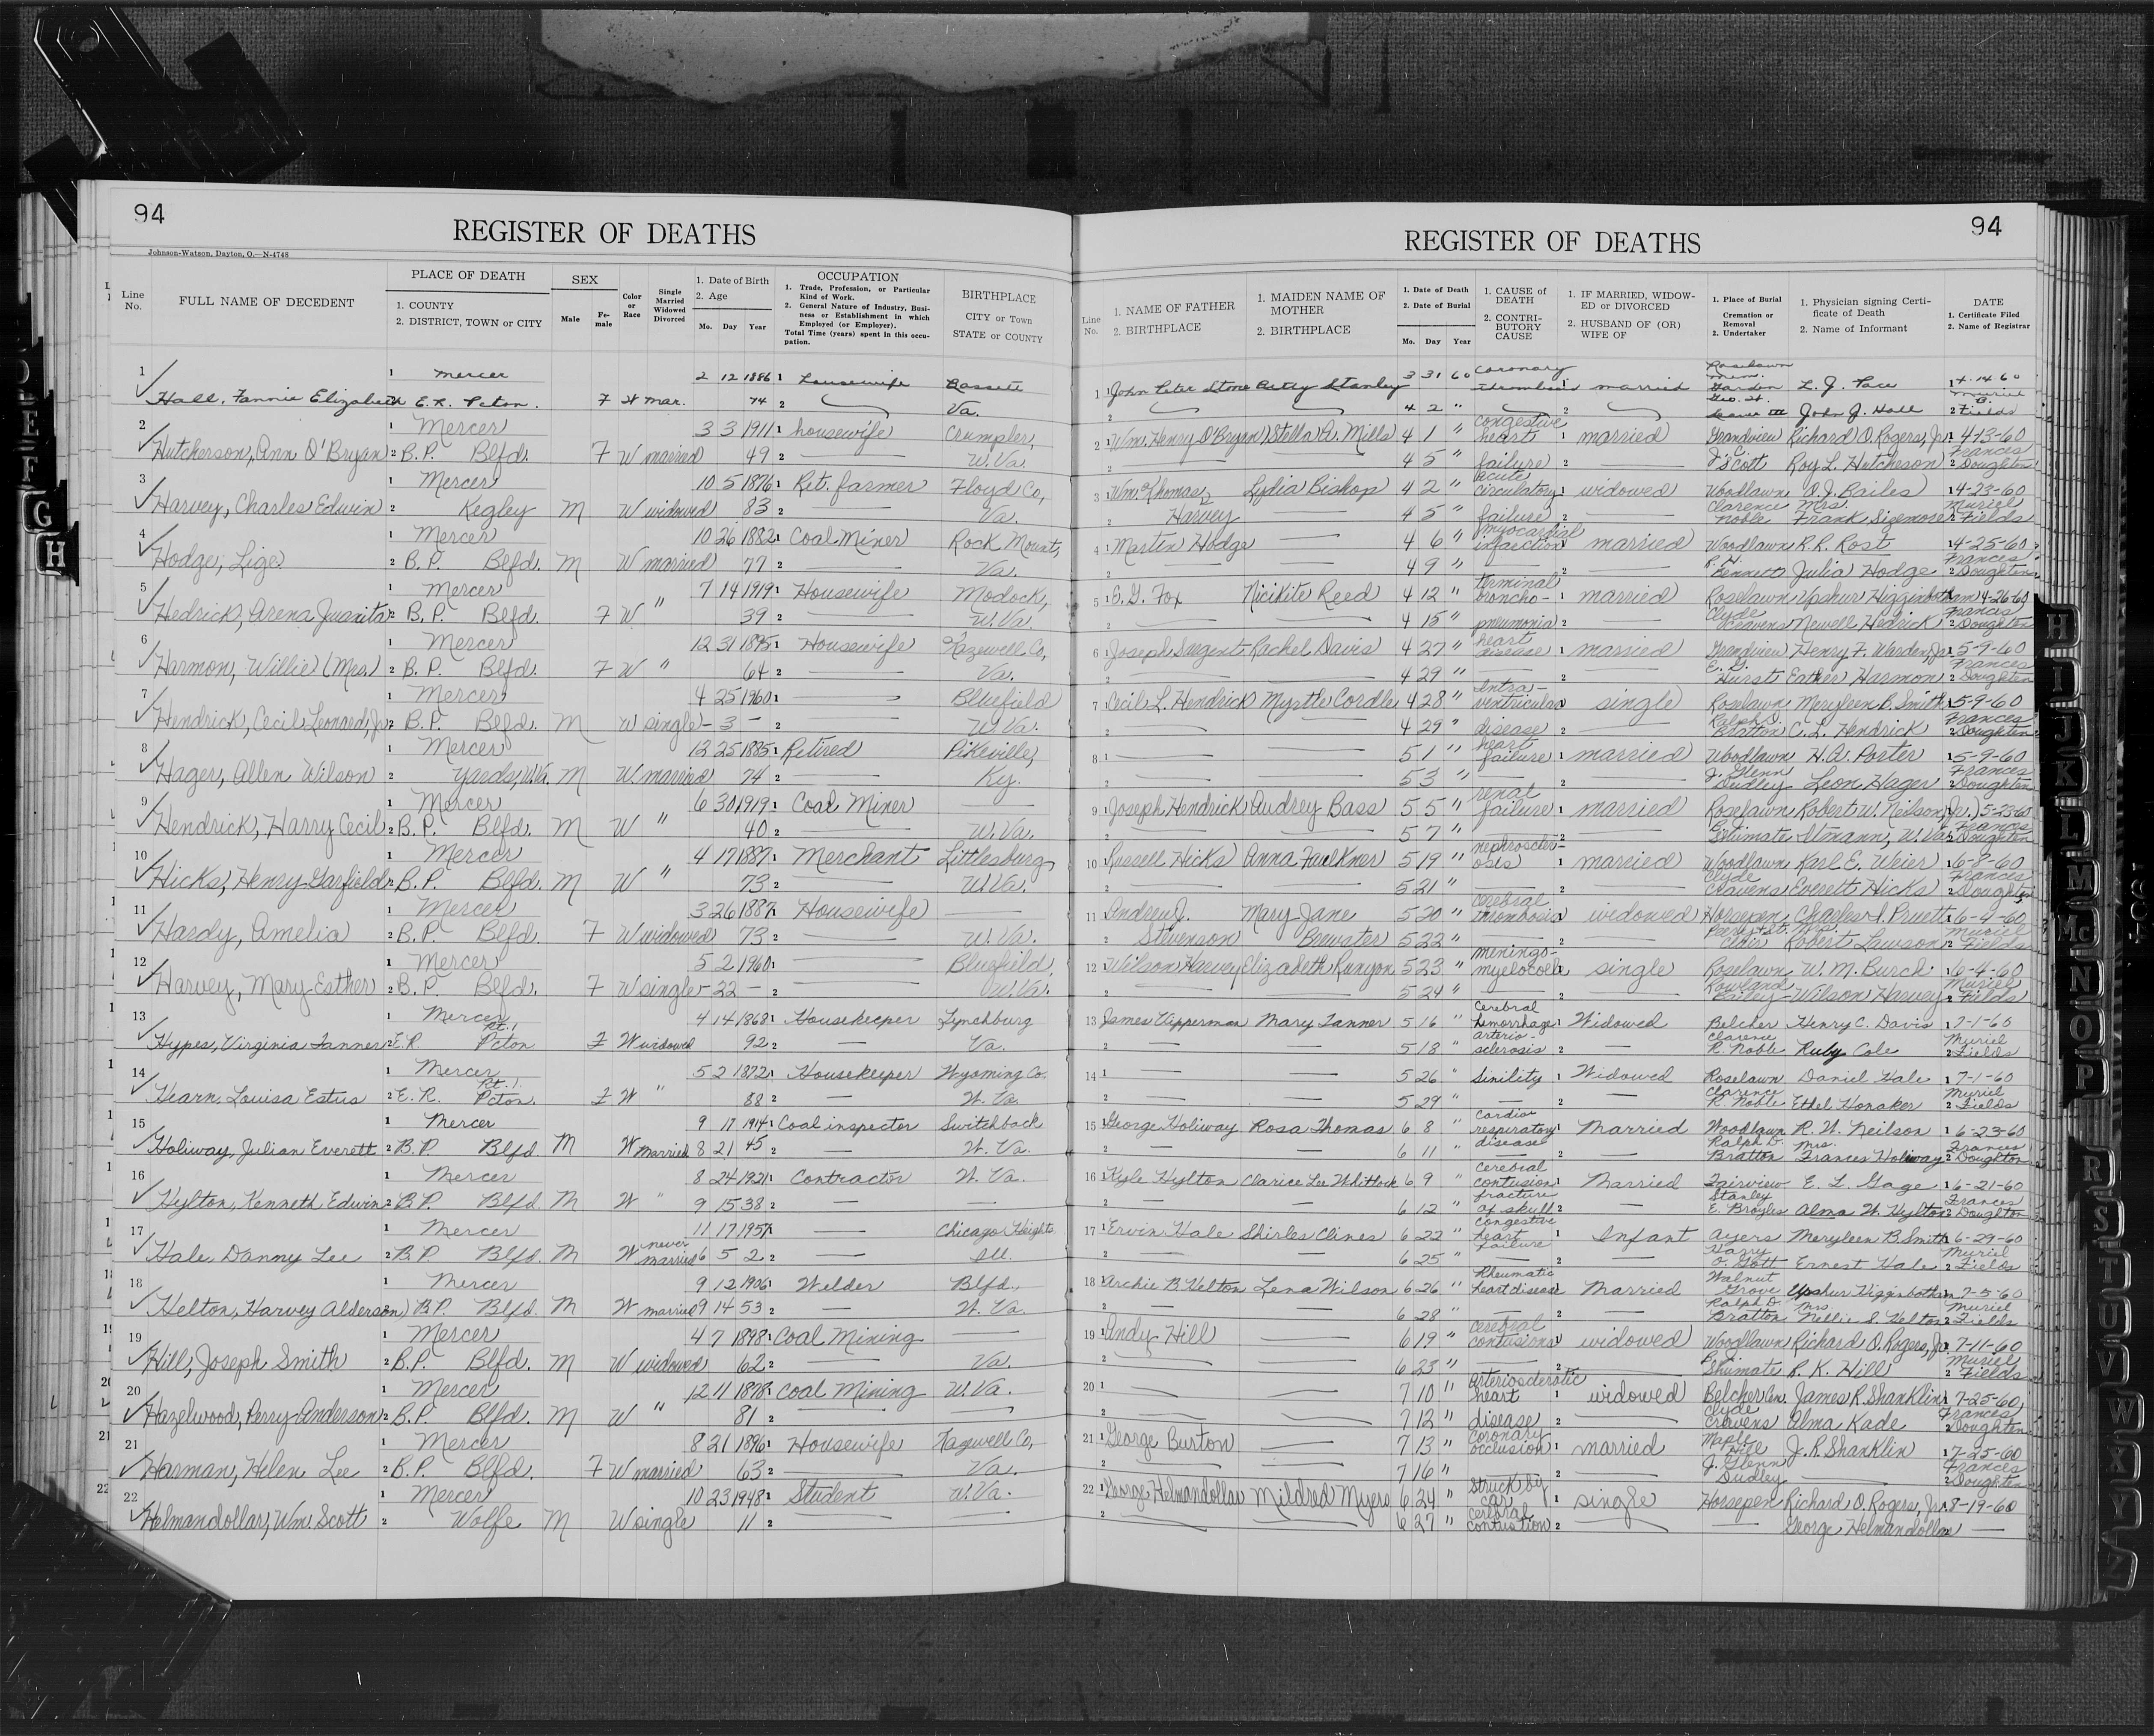 94
REGISTER OF DEATHS
Johnson-Watson, Dayton, O.—N-4748
Line No.
FULL NAME OF DECEDENT
PLACE OF DEATH
1. COUNTY
2. DISTRICT, TOWN or CITY
SEX
Male
Fe-male
Color or Race
Single Married Widowed Divorced
1. Date of Birth
2. Age
Mo. Day Year
OCCUPATION
1. Trade, Profession, or Particular Kind of Work.
2. General Nature of Industry, Business or Establishment in which Employed (or Employer).
Total Time (years) spent in this occupation.
BIRTHPLACE
CITY or Town
STATE or COUNTY
1 Mercer 2 12 1886 1 Housewife Bassett
Hall, Fannie Elizabeth 2 E.R. Pcton. F W Mar. 74 2 Va.
2 1 Mercer 3 3 1911 1 housewife Crumpler,
Hutcherson, Ann O'Bryan 2 B.P. Blfd. F W married 49 2 W.Va.
3 1 Mercer 10 5 1876 1 Ret. farmer Floyd Co,
Harvey, Charles Edwin 2 Kegley M W widowed 83 2 Va.
4 1 Mercer 10 26 1882 1 Coal Miner Rock Mount,
Hodge, Lige 2 B.P. Blfd. M W married 77 2 Va.
5 1 Mercer 7 14 1919 1 Housewife Modock,
Hedrick, Arena Juanita 2 B.P. Blfd. F W " 39 2 W.Va.
6 1 Mercer 12 31 1895 1 Housewife Tazewell Co,
Harmon, Willie (Mrs.) 2 B.P. Blfd. F W " 64 2 Va.
7 1 Mercer 4 25 1960 1 Bluefield
Hendrick, Cecil Leonard, Jr. 2 B.P. Blfd. M W single - 3 - 2 W.Va.
8 1 Mercer 12 25 1885 1 Retired Pikeville,
Hager, Allen Wilson 2 Yards, W.Va. M W married 74 2 Ky.
9 1 Mercer 6 30 1919 1 Coal Miner
Hendrick, Harry Cecil 2 B.P. Blfd. M W " 40 2 W.Va.
10 1 Mercer 4 17 1887 1 Merchant Littlesburg,
Hicks, Henry Garfield 2 B.P. Blfd. M W " 73 2 W.Va.
11 1 Mercer 3 26 1887 1 Housewife
Hardy, Amelia 2 B.P. Blfd. F W widowed 73 2 W.Va.
12 1 Mercer 5 2 1960 1 Bluefield,
Harvey, Mary Esther 2 B.P. Blfd. F W single - 22 - 2 W.Va.
13 1 Mercer 4 14 1868 1 Housekeeper Lynchburg
Hypes, Virginia Tanner 2 E.R. Rt. 1 Pcton F W widowed 92 2 Va.
14 1 Mercer 5 2 1872 1 Housekeeper Wyoming Co.
Hearn, Louisa Estus 2 E.R. Rt. 1. Pcton. F W " 88 2 W. Va.
15 1 Mercer 9 17 1914 1 Coal inspector Switchback
Holiway, Julian Everett 2 B.P. Blfd. M W Married 8 21 45 2 W. Va.
16 1 Mercer 8 24 1921 1 Contractor W. Va.
Hylton, Kenneth Edwin 2 B.P. Blfd M W " 9 15 38 2
17 1 Mercer 11 17 1957 1 Chicago Heights
Hale, Danny Lee 2 B.P. Blfd. M W never married 6 5 2 2 Ill.
18 1 Mercer 9 12 1906 1 Welder Blfd.,
Helton, Harvey Alderson 2 B.P. Blfd. M W married 9 14 53 2 W. Va.
19 1 Mercer 4 7 1898 1 Coal Mining
Hill, Joseph Smith 2 B.P. Blfd. M W widowed 62 2 Va.
20 1 Mercer 12 11 1878 1 Coal Mining W.Va.
Hazelwood, Perry Anderson 2 B.P. Blfd. M W " 81 2
21 1 Mercer 8 21 1896 1 Housewife Tazewell Co,
Harman, Helen Lee 2 B.P. Blfd. F W married 63 2 Va.
22 1 Mercer 10 23 1948 1 Student W.Va.
Helmandollar, Wm. Scott 2 Wolfe M W single 11 2
94
REGISTER OF DEATHS
Line No.
1. NAME OF FATHER
2. BIRTHPLACE
1. MAIDEN NAME OF MOTHER
2. BIRTHPLACE
1. Date of Death
2. Date of Burial
Mo. Day Year
1. CAUSE OF DEATH
2. CONTRIBUTORY CAUSE
1. IF MARRIED, WIDOWED or DIVORCED
2. HUSBAND OF (OR) WIFE OF
1. Place of Burial Cremation or Removal
2. Undertaker
1. Physician signing Certificate of Death
2. Name of Informant
DATE
1. Certificate Filed
2. Name of Registrar
1 1 John Peter Stone Betty Stanley 3 31 60 Coronary thrombosis 1 married Roselawn Mem. Garden L. J. Pace 1 4-14-60
2 4 2 " 2 Geo. W. III John J. Hall Muriel B. 2 Fields
2 1 Wm. Henry O'Bryan Stella A. Mills 4 1 " congestive heart 1 married Grandview Richard O. Rogers, Jr. 1 4-13-60
2 4 5 " failure 2 J. C. Scott Roy L. Hutcheson Frances 2 Doughton
3 1 Wm. Thomas Lydia Bishop 4 2 " acute circulatory 1 widowed Woodlawn O. J. Bailes 1 4-23-60
2 Harvey 4 5 " failure 2 Clarence Noble Mrs. Frank Sizemore Muriel 2 Fields
4 1 Martin Hodge 4 6 " myocardial infarction 1 married Woodlawn R. R. Rost 1 4-25-60
2 4 9 " 2 Bennett Julia Hodge Frances 2 Doughton
5 1 E. G. Fox Nicikite Reed 4 12 " terminal broncho- 1 married Roselawn Upshur Higginbotham 1 4-26-60
2 4 15 " pneumonia 2 Clyde Cravens Newell Hedrick Frances 2 Doughton
6 1 Joseph Sargent Rachel Davis 4 27 " heart disease 1 married Grandview Henry F. Warden, Jr. 1 5-9-60
2 4 29 " 2 E. G. Hurst Esther Harmon Frances 2 Doughton
7 1 Cecil L. Hendrick Myrtle Cordle 4 28 " Intra-ventricular 1 single Roselawn Meryleen B. Smith 1 5-9-60
2 4 29 " disease 2 Ralph D. Bratton C. L. Hendrick Frances 2 Doughton
8 1 5 1 " heart failure 1 married Woodlawn H. A. Porter 1 5-9-60
2 5 3 " 2 J. Glenn Dudley Leon Hager Frances 2 Doughton
9 1 Joseph Hendrick Audrey Bass 5 5 " renal failure 1 married Roselawn Robert W. Neilson, Jr. 1 5-23-60
2 5 7 " 2 Shumate Itmann, W.Va. Frances 2 Doughton
10 1 Russell Hicks Anna Faulkner 5 19 " nephroscler-osis 1 married Woodlawn Karl E. Weier 1 6-8-60
2 5 21 " 2 Clyde Cravens Everett Hicks Frances 2 Doughton
11 1 Andrew J. Mary Jane 5 20 " cerebral thrombosis 1 widowed Horsepen Charles I. Pruett 1 6-9-60
2 Stevenson Brewster 5 22 " 2 Robert Lawson Muriel 2 Fields
12 1 Wilson Harvey Elizabeth Runyon 5 23 " meningo-myelocoele 1 single Roselawn W. M. Burch 1 6-4-60
2 5 24 " 2 Rowland Bailey Wilson Harvey Muriel 2 Fields
13 1 James Vipperman Mary Tanner 5 16 " Cerebral hemorrhage 1 Widowed Belcher Henry C. Davis 1 7-1-60
2 5 18 " arterio-sclerosis 2 Clarence R. Noble Ruby Cole Muriel 2 Fields
14 1 5 26 " Sinility 1 Widowed Roselawn Daniel Hale 1 7-1-60
2 5 29 " 2 Clarence R. Noble Ethel Honaker Muriel 2 Fields
15 1 George Holiway Rosa Thomas 6 8 " Cardiac respiratory 1 Married Woodlawn R. W. Neilson 1 6-23-60
2 6 11 " disease 2 Ralph D. Bratton Mrs. Frances Holiway Frances 2 Doughton
16 1 Kyle Hylton Clarice Lee Whitlock 6 9 " cerebral contusion 1 Married Fairview E. L. Gage 1 6-21-60
2 6 12 " fracture of skull 2 Stanley E. Broyles Alma W. Hylton Frances 2 Doughton
17 1 Ervin Hale Shirles Clines 6 22 " Congestive heart failure 1 Infant Ayers Meryleen B. Smith 1 6-29-60
2 6 25 " 2 Harry O. Gott Ernest Hale Muriel 2 Fields
18 1 Archie B. Helton Lena Wilson 6 26 " Rheumatic heart disease 1 Married Walnut Grove Upshur Higginbotham 1 7-5-60
2 6 28 " 2 Ralph D. Bratton Mrs. Nellie S. Helton Muriel 2 Fields
19 1 Andy Hill 6 19 " cerebral contusions 1 widowed Woodlawn Richard O. Rogers, Jr. 1 7-11-60
2 6 23 " 2 Shumate R. K. Hill Muriel 2 Fields
20 1 7 10 " arteriosclerotic heart 1 widowed Belcher Cem. James R. Shanklin 1 7-25-60
2 7 12 " disease 2 Clyde Cravens Alma Kade Frances 2 Doughton
21 1 George Burton 7 13 " coronary occlusion 1 married Maple Hill J. R. Shanklin 1 7-25-60
2 7 16 " 2 J. Glenn Dudley Frances 2 Doughton
22 1 George Helmandollar Mildred Myers 6 24 " struck by car 1 single Horsepen Richard O. Rogers, Jr. 1 8-19-60
2 6 27 " cerebral contustion 2 George Helmandollar 2
E
F
G
H
H
I
J
K
L
M
Mc
N
O
P
R
S
T
U
V
W
X
Y
Z